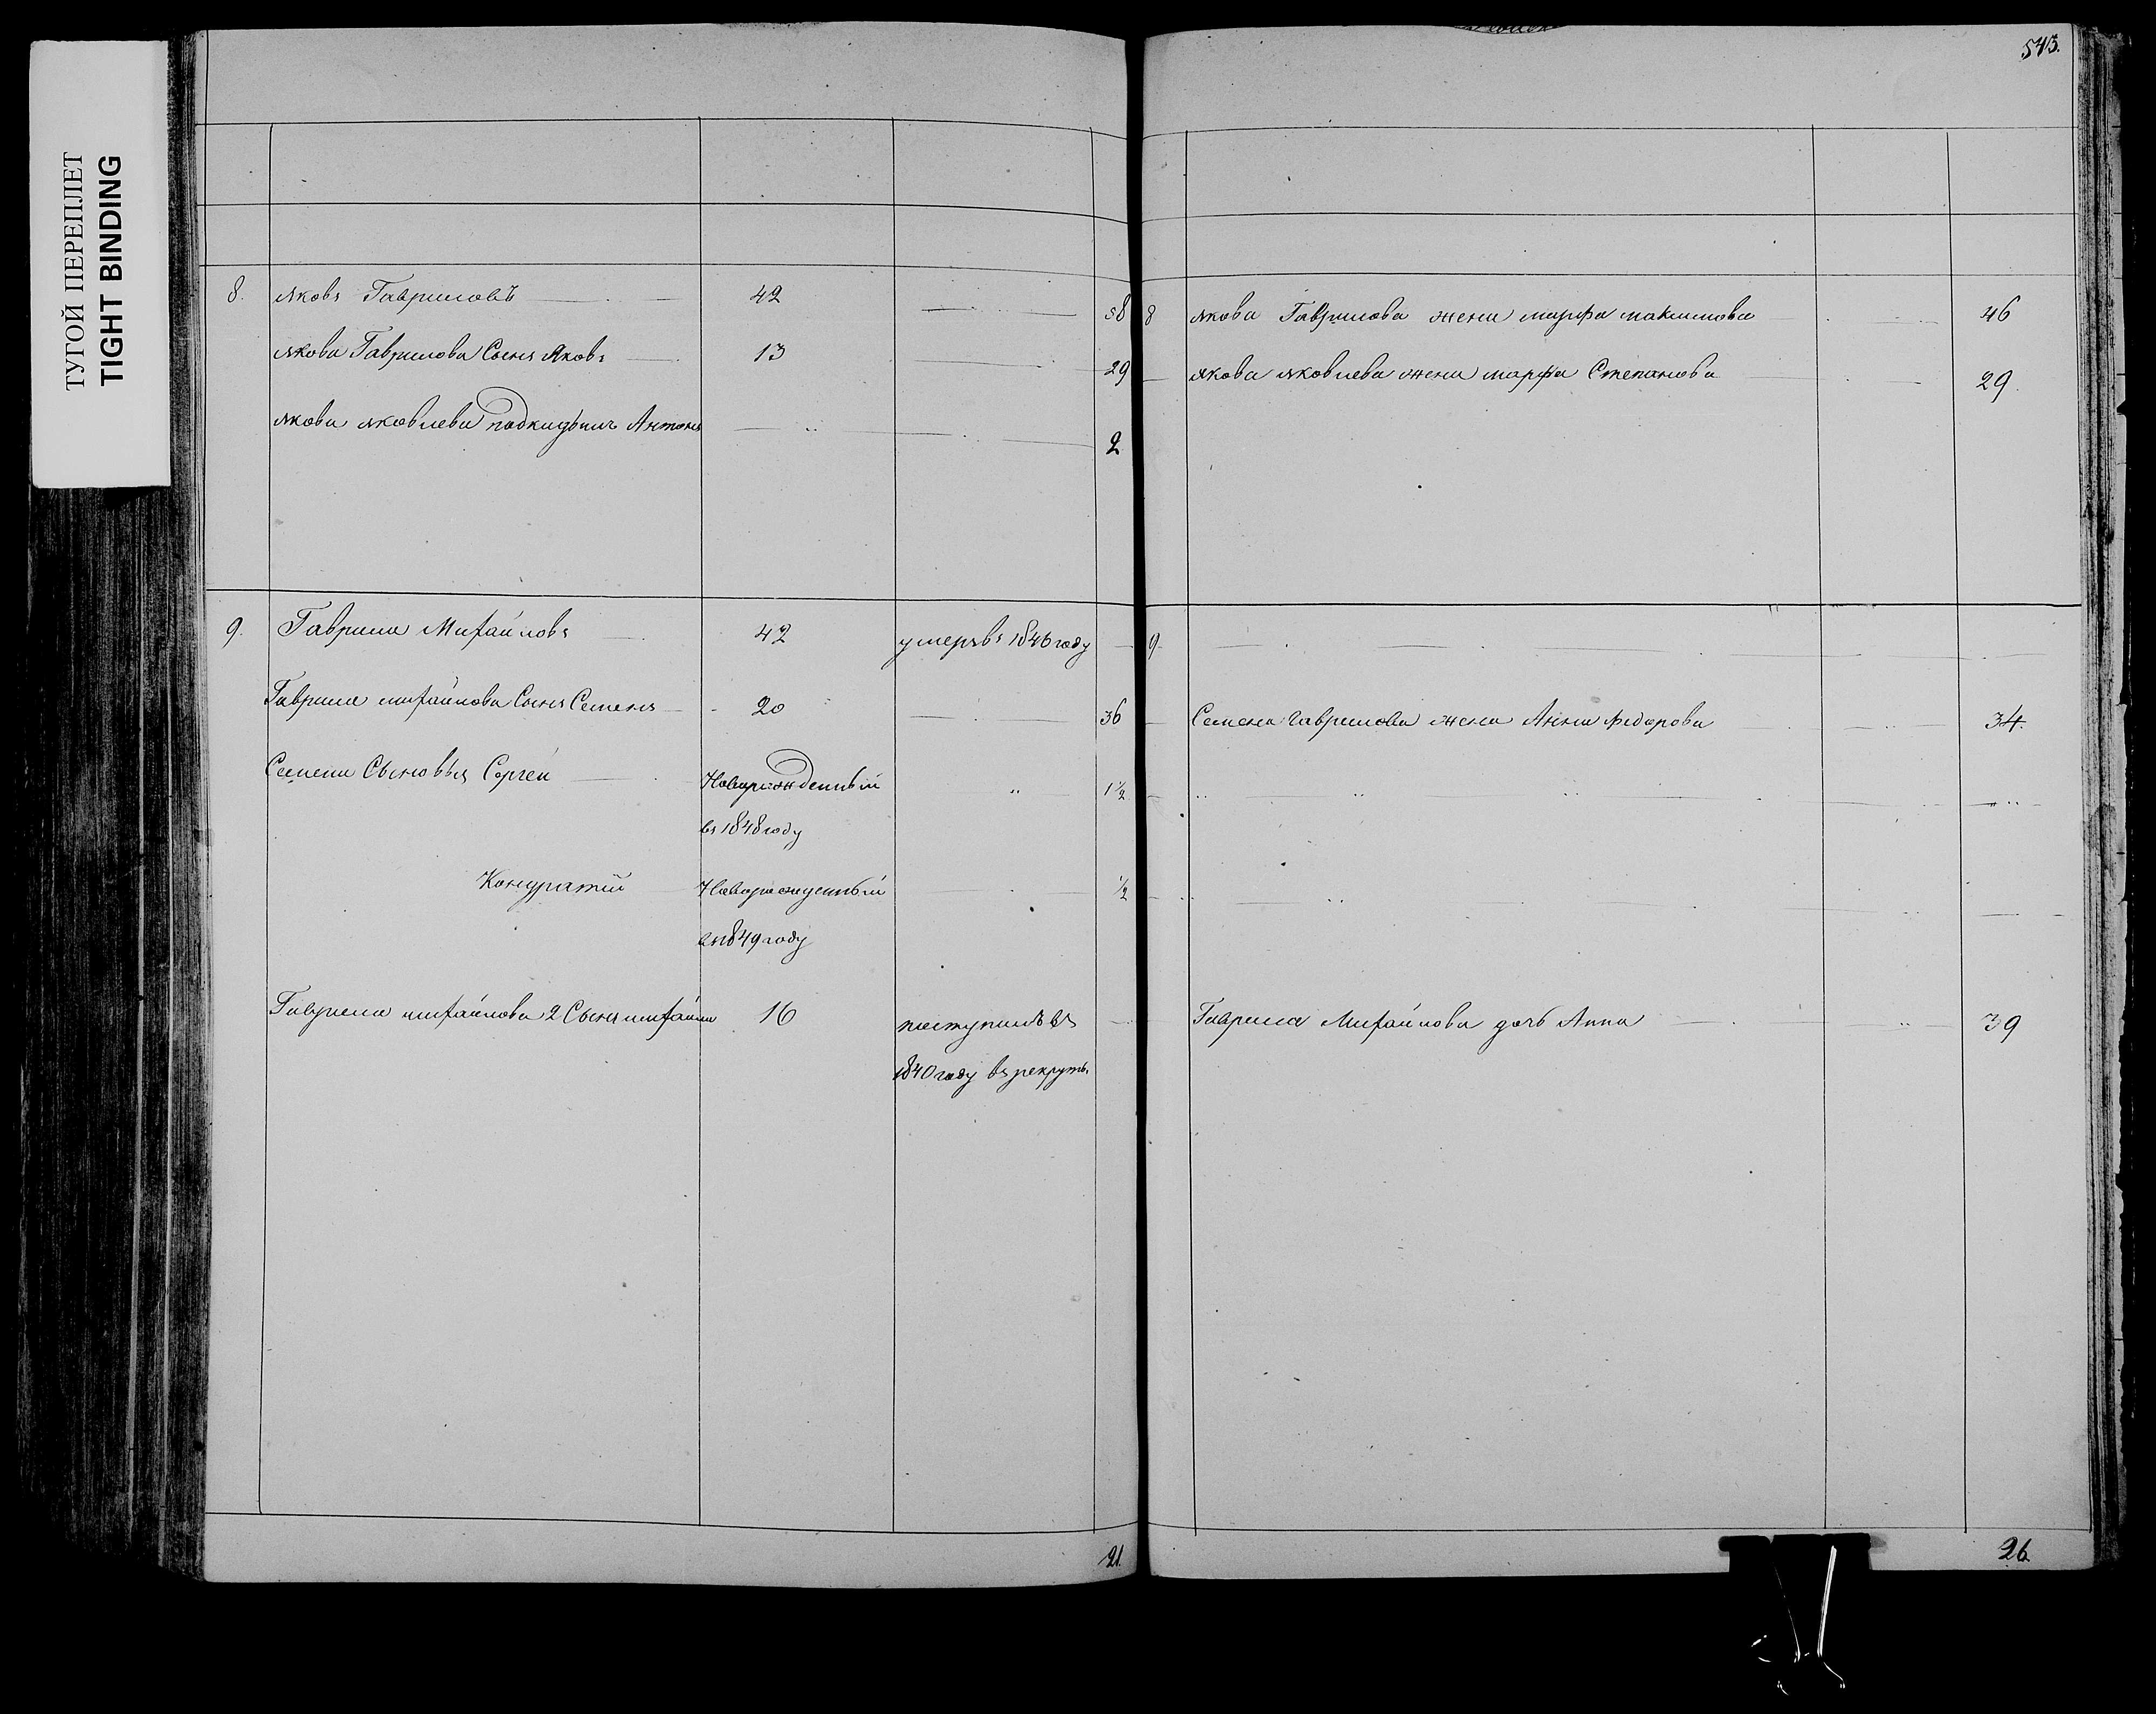 ТУГОЙ ПЕРЕПЛЕТ
TIGHT BINDING
543.
8. Яковъ Гавриловъ 42 58
Якова Гаврилова Сынъ Яковъ 13 29
Якова Яковлева подкидышъ Антонъ 2
9. Гаврила Михайловъ 42 умеръ въ 1846 году
Гаврила михайлова Сынъ Семенъ 20 36
Семена Сыновья Сергей Новорожденный 1½
въ 1848 году
Кондратий Новорожденный ½
въ 1849 году
Гаврила михайлова 2 Сынъ михайла 16 поступилъ въ
1840 году въ рекруты
21.
8 Якова Гаврилова жена марфа максимова 46
Якова Яковлева жена марфа Степанова 29.
9
Семена Гаврилова жена Анна Федорова 34.
Гаврила Михайлова дочь Анна 39
26